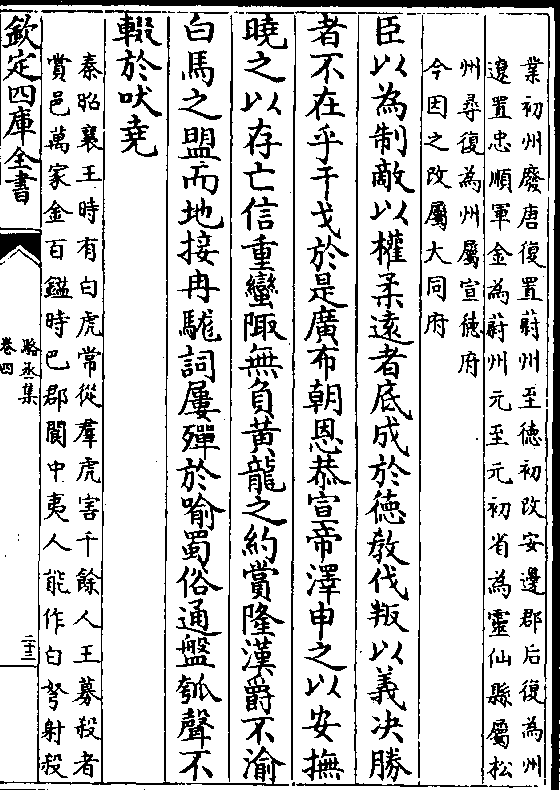 業初州廢唐復置蔚州至徳初改安邊郡后復為州
遼置忠順軍金為蔚州元至元初省為靈仙縣屬松
州尋復為州屬宣徳府
今因之改屬大同府
臣以為制敵以權柔逺者底成於徳教伐叛以義决勝
者不在乎干戈於是廣布朝恩恭宣帝澤申之以安撫
曉之以存亡信重蠻陬無負黄龍之約賞隆漢爵不渝
白馬之盟而地接冉駹詞屢殫於喻蜀俗通盤瓠聲不
輟於吠堯
秦昭襄王時有白虎常從羣虎害千餘人王募殺者
賞邑萬家金百鎰時巴郡閬中夷人能作白弩射殺
欽定四庫全書
駱丞集
卷四
二十三